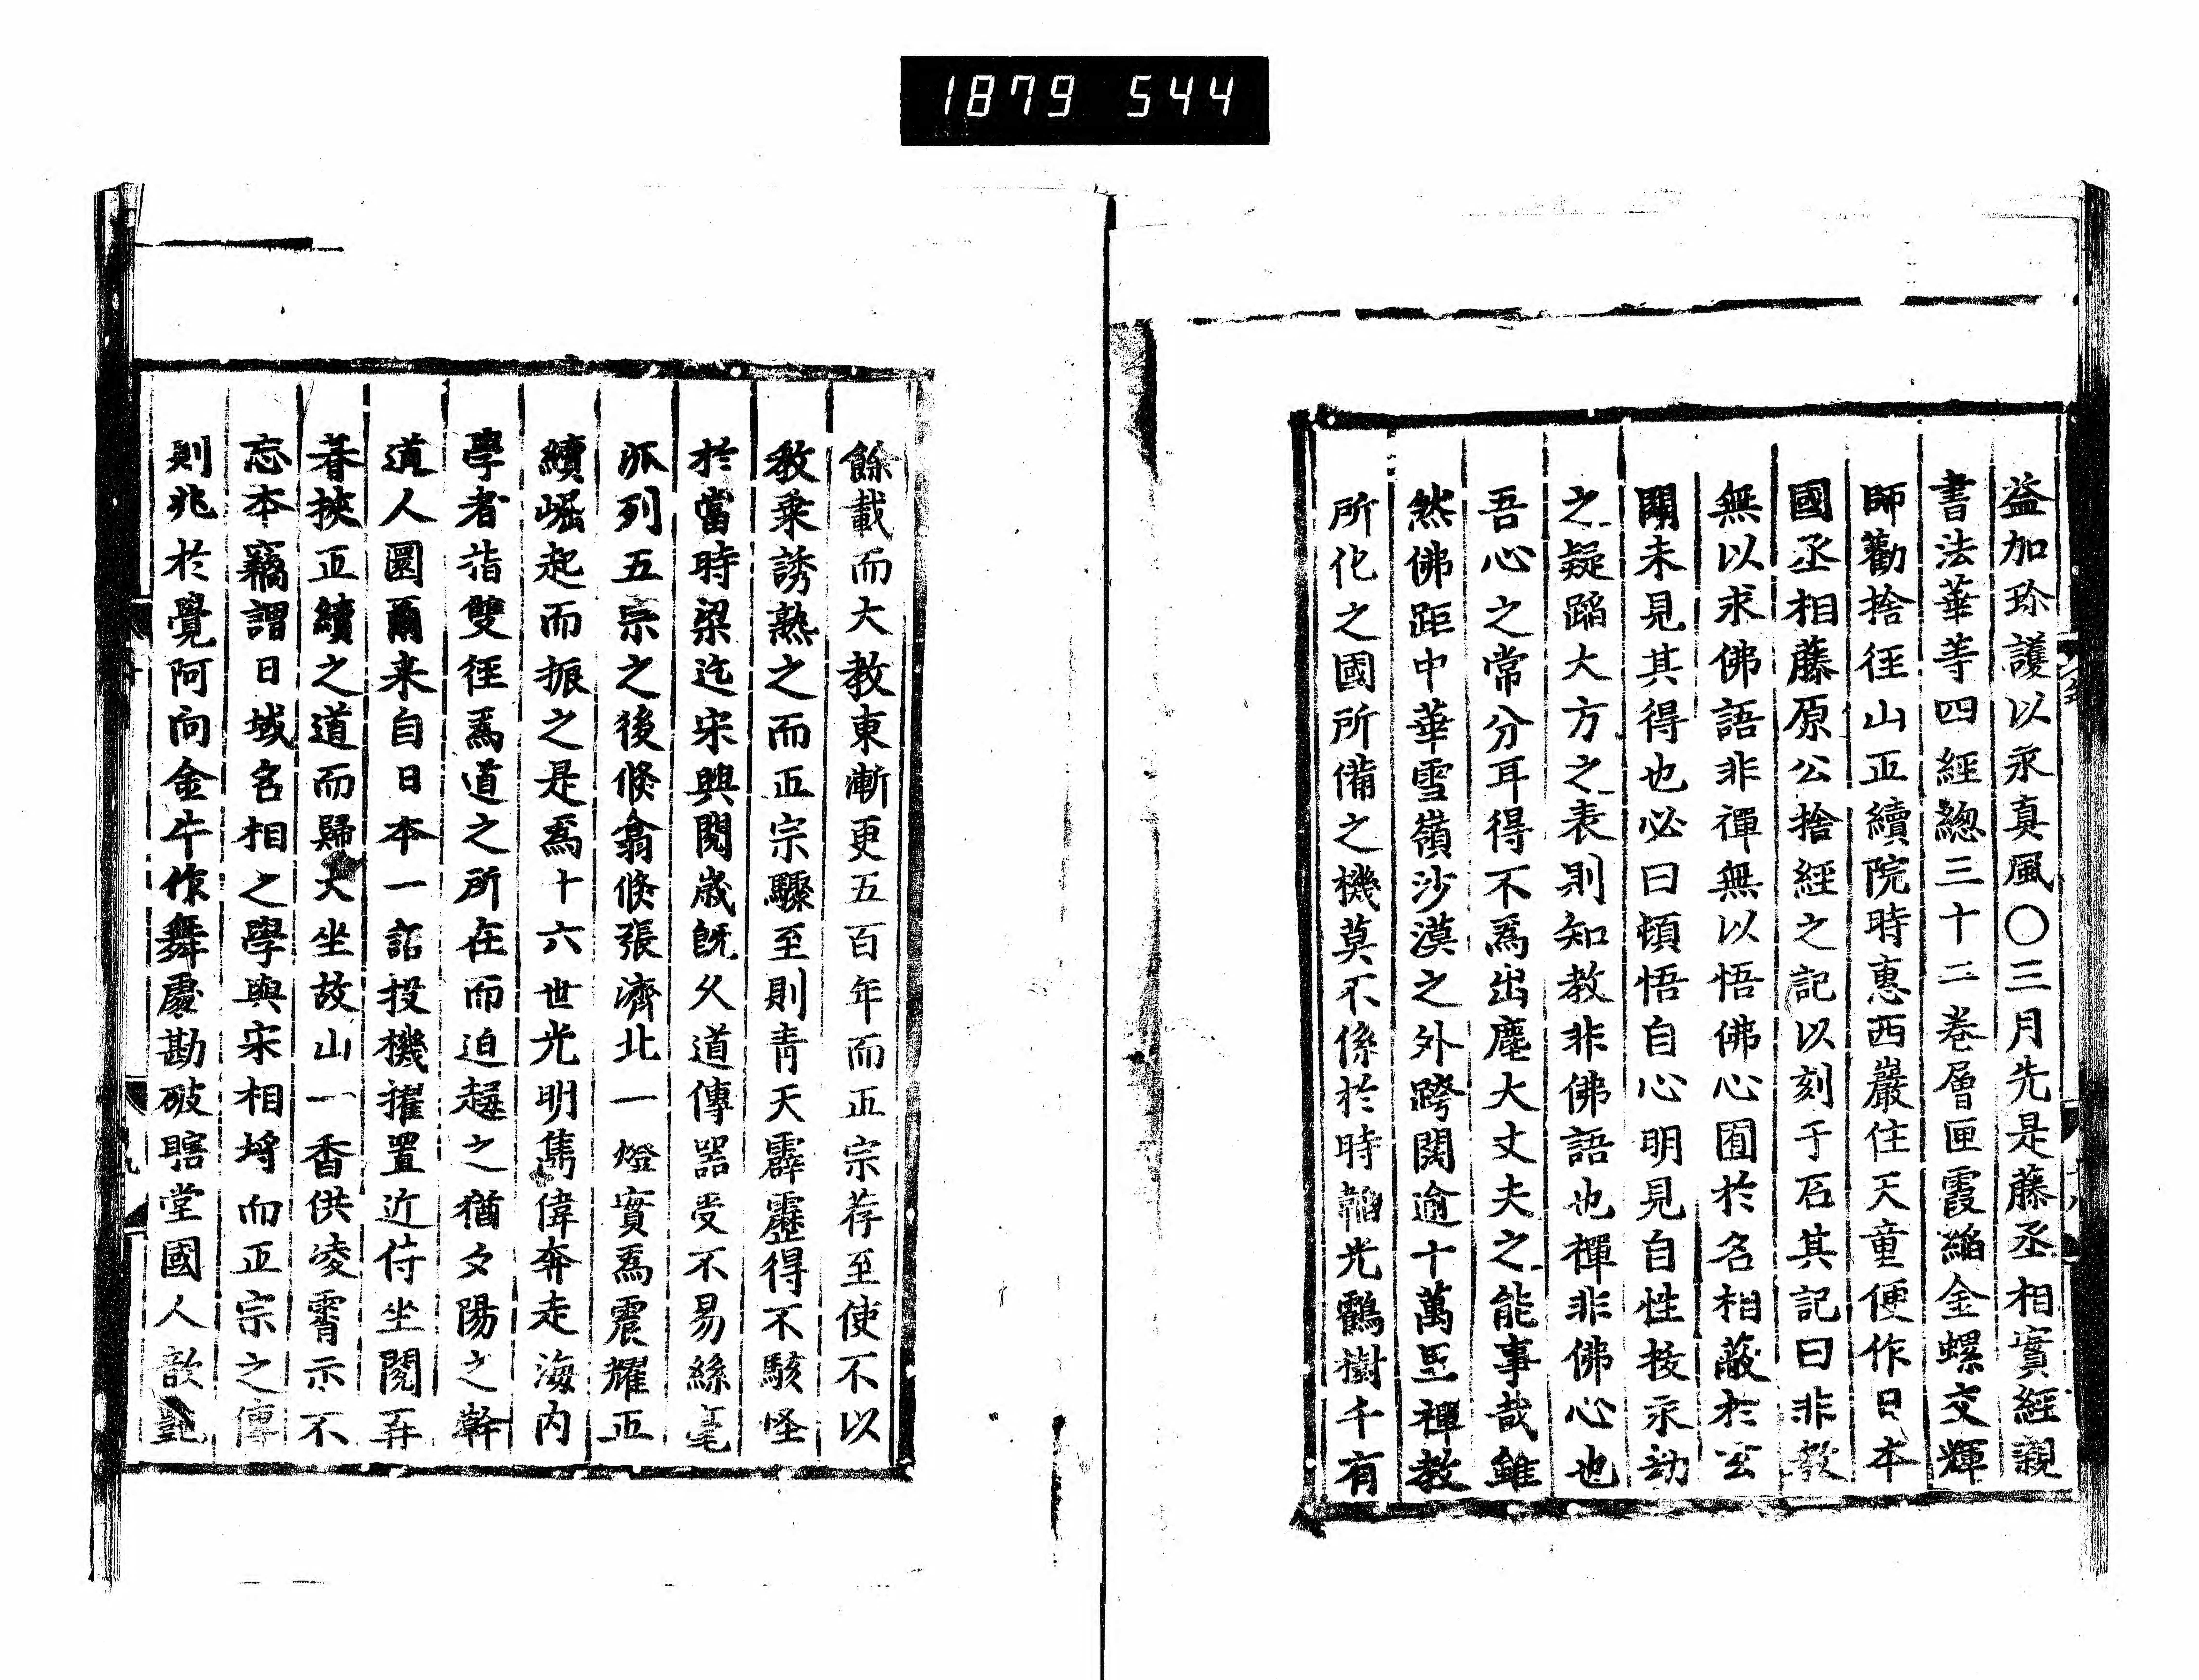 1879 544
益加珎護以永真風〇三月先是藤丞相實經親
書法華等四經總三十二卷層匣霞縚金螺交輝
師勸捨徑山正續院時惠西巖住天童便作日本
國丞相藤原公捨經之記以刻于石其記曰非教
無以求佛語非禪無以悟佛心囿於名相蔽於玄
關未見其得也必曰頓悟自心明見自性投永劫
之疑蹈大方之表則知教非佛語也禪非佛心也
吾心之常分耳得不爲出塵大丈夫之能事哉雖
然佛距中華雪嶺沙漠之外跨闊逾十萬里禪教
所化之國所備之機莫不係於時韜光鶴樹千有
餘載而大教東漸更五百年而正宗荐至使不以
教乗誘熟之而正宗驟至則青天霹靂得不駭怪
於當時梁迄宋興閱歳旣久道傳器受不易絲毫
派列五宗之後倏翕倏張濟北一燈實爲震耀正
續崛起而振之是爲十六世光明雋偉奔走海內
學者指雙徑爲道之所在而迫趨之猶夕陽之幹
道人圜爾来自日本一詣投機擢置近侍坐閱再
朞挾正續之道而歸大坐故山一香供凌霄示不
忘本竊謂日域名相之學與宋相埒而正宗之傳
則兆於覺阿向金牛作舞處勘破瞎堂國人歆豔